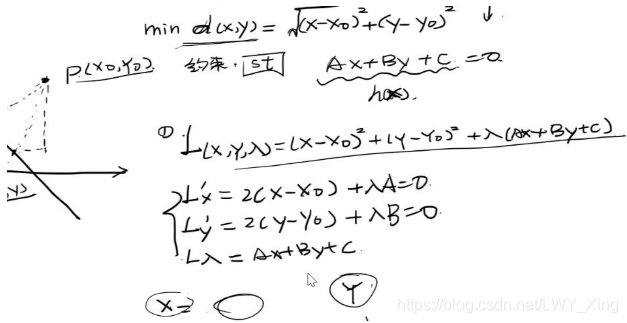 min d(x,y) = √(x-x0)²+(y-y0)² ↓
P(x0,y0) 约束. st Ax+By+C=0
h(x).
① L(x,y,λ)=(x-x0)²+(y-y0)²+λ(Ax+By+C)
,y)
L'x = 2(x-x0)+λA=0.
L'y = 2(y-y0)+λB=0.
Lλ = Ax+By+C.
x= Y
https://blog.csdn.net/LWY_Xing